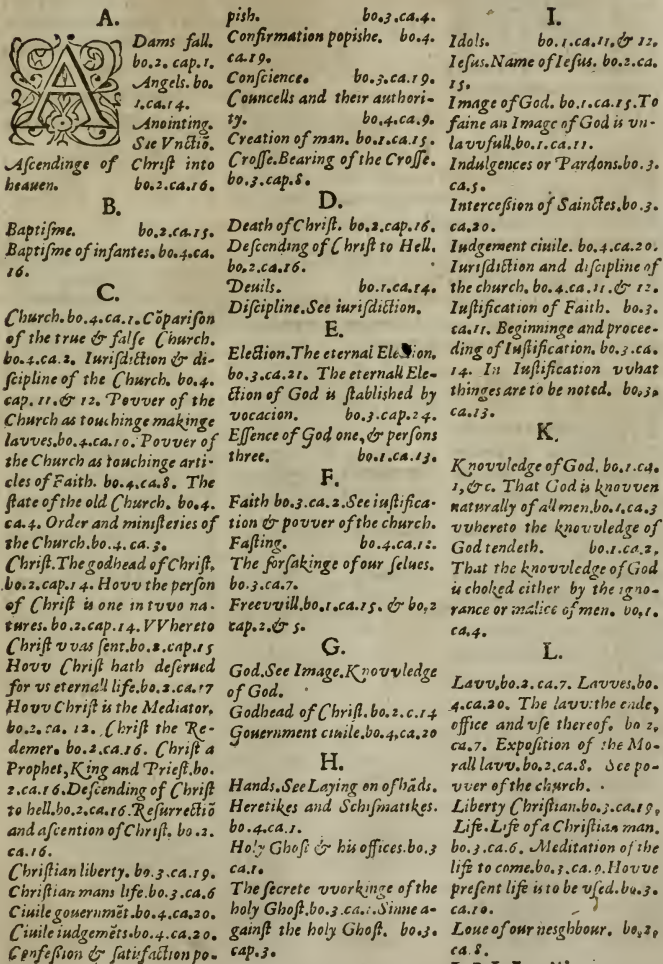 A.
ADams fall.
bo.2. cap.1.
Angels. bo.
1.ca.14.
Anointing.
See Vnctiō.
Ascendinge of Christ into
heauen. bo.2.ca.16.
B.
Baptisme. bo.2.ca.15.
Baptisme of infantes. bo.4.ca.
16.
C.
Church. bo.4.ca.1. Cōparison
of the true & false Church.
bo.4.ca.2. Iurisdiction & di-
scipline of the Church. bo.4.
cap. 11.& 12. Povver of the
Church as touchinge makinge
lavves. bo.4.ca.10. Povver of
the Church as touchinge arti-
cles of Faith. bo.4.ca.8. The
state of the old Church. bo.4.
ca.4. Order and ministeries of
the Church. bo.4. ca.3.
Christ. The godhead of Christ.
bo.2.cap.14. Hovv the person
of Christ is one in tvvo na-
tures. bo.2.cap.14. VVhereto
Christ vvas sent. bo.2.cap.15
Hovv Christ hath deserued
for vs eternall life. bo.2.ca.17
Hovv Christ is the Mediator.
bo.2.ca. 12. Christ the Re-
demer. bo.2.ca.16. Christ a
Prophet, King and Priest. bo.
2.ca.16. Descending of Christ
to hell. bo.2.ca.16. Resurrectiō
and ascention of Christ. bo.2.
ca.16.
Christian liberty. bo.3.ca.19.
Christian mans life. bo.3.ca.6
Ciuile gouernmēt. bo.4.ca.20.
Ciuile iudgemēts. bo.4.ca.20.
Confession & satisfaction po-
pish. bo.3.ca.4.
Confirmation popishe. bo.4.
ca.19.
Conscience. bo.3.ca.19.
Councells and their authori-
ty. bo.4.ca.9.
Creation of man. bo.1.ca.15.
Crosse. Bearing of the Crosse.
bo.3.cap.8.
D.
Death of Christ. bo.2.cap.16.
Descending of Christ to Hell.
bo.2.ca.16.
Deuils. bo.1.ca.14.
Discipline. See iurisdiction.
E.
Election. The eternal Election.
bo.3.ca.21. The eternall Ele-
ction of God is stablished by
vocacion. bo.3.cap.24.
Essence of God one, & persons
three. bo.1.ca.13.
F.
Faith bo.3.ca.2. See iustifica-
tion & povver of the church.
Fasting. bo.4.ca.12.
The forsakinge of our selues.
bo.3.ca.7.
Freevvill. bo.1.ca.15. & bo,2
cap.2.& 5.
G.
God. See Image. Knovvledge
of God.
Godhead of Christ. bo.2.c.14
Gouernment ciuile. bo.4.ca.20
H.
Hands. See Laying on of hāds.
Heretikes and Schismatikes.
bo.4.ca.1.
Holy Ghost & his offices. bo.3
ca.1.
The secrete vvorkinge of the
holy Ghost. bo.3.ca.1. Sinne a-
gainst the holy Ghost. bo.3.
cap.3.
I.
Idols. bo.1.ca.11.& 12.
Iesus. Name of Iesus. bo.2.ca.
15.
Image of God. bo.1.ca.15. To
faine an Image of God is vn-
lavvfull. bo.1.ca.11.
Indulgences or Pardons. bo.3.
ca.5.
Intercession of Sainctes. bo.3.
ca.20.
Iudgement ciuile. bo.4.ca.20.
Iurisdiction and discipline of
the church. bo.4.ca.11.& 12.
Iustification of Faith. bo.3.
ca.11. Beginninge and procee-
ding of Iustification. bo.3.ca.
14. In Iustification vvhat
thinges are to be noted. bo.3.
ca.13.
K.
Knovvledge of God. bo.1.ca.
1,&c. That God is knovven
naturally of all men. bo.1.ca.3
vvhereto the knovvledge of
God tendeth. bo.1.ca.2.
That the knovvledge of God
is choked either by the igno-
rance or malice of men. bo,1.
ca.4.
L.
Lavv. bo.2.ca.7. Lavves. bo.
4.ca.20. The lavv: the ende,
office and vse thereof. bo 2,
ca.7. Exposition of the Mo-
rall lavv. bo.2.ca.8. See po-
vver of the church.
Liberty Christian. bo.3.ca.19,
Life. Life of a Christian man.
bo.3.ca.6. Meditation of the
life to come. bo.3.ca.9. Hovve
present life is to be vsed. bo.3.
ca.10.
Loue of our neighbour. bo,2,
ca.8.